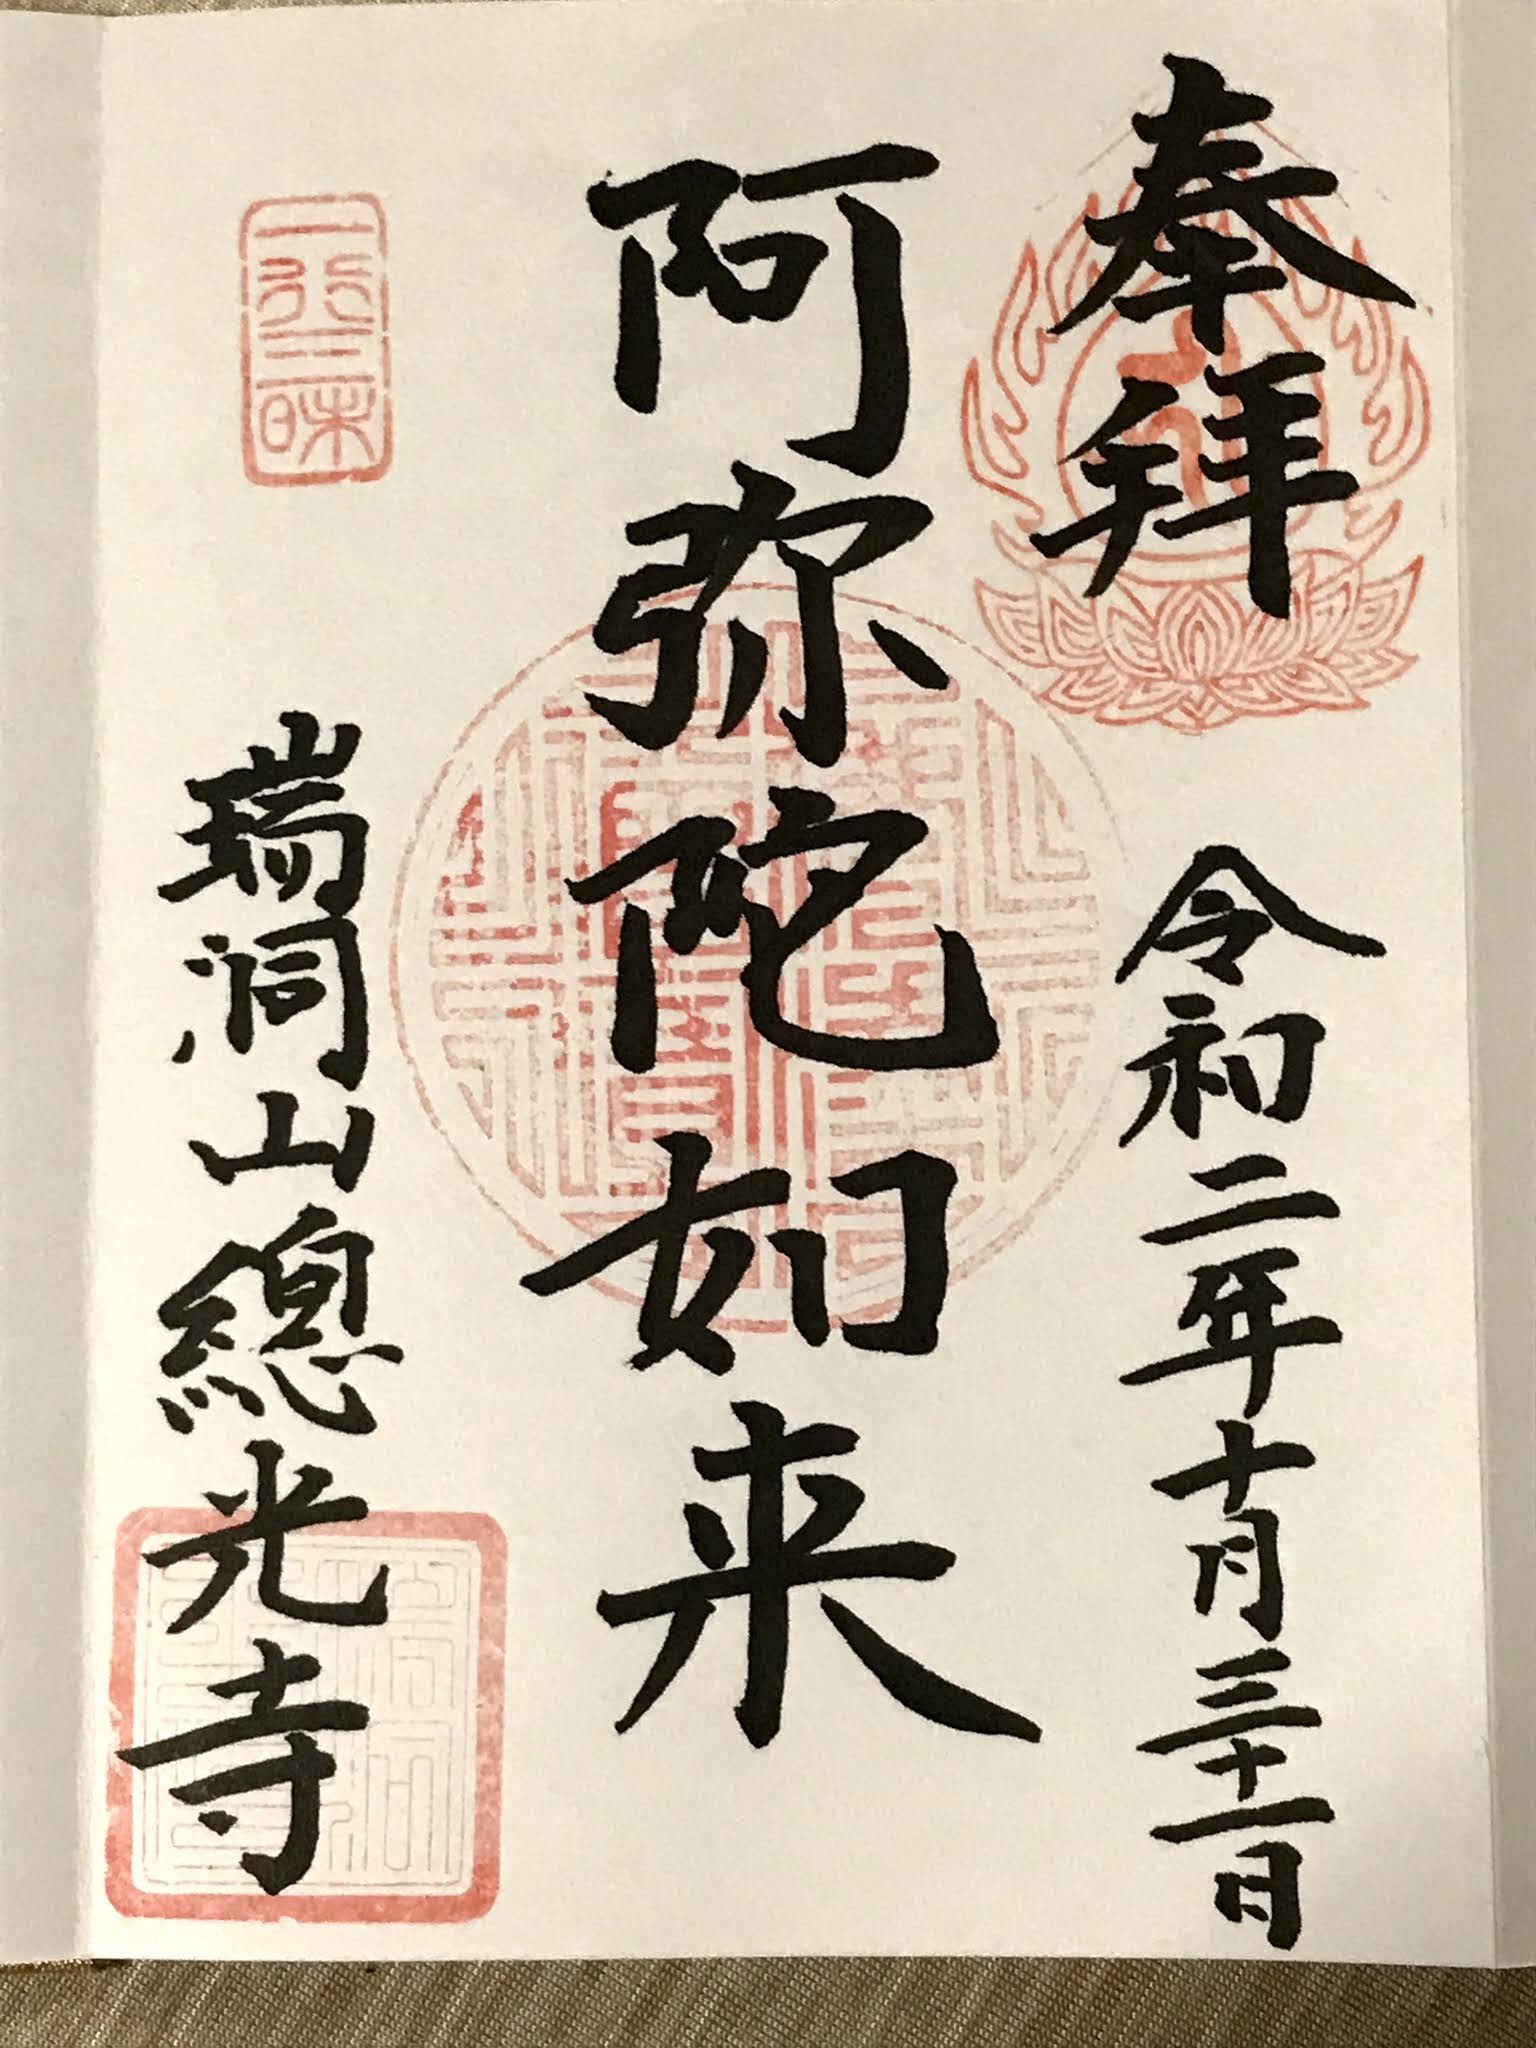 奉拝
令和二年十月三十一日
阿弥陀如来
一行三昧
瑞洞山總光寺